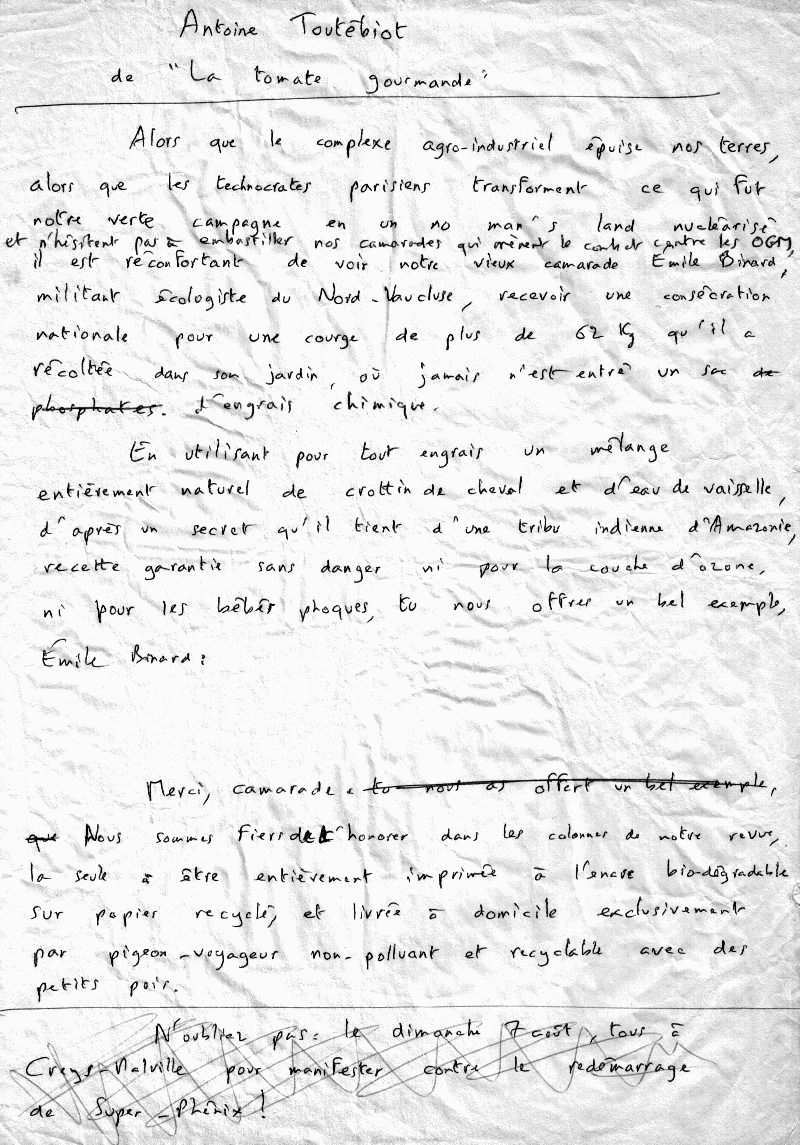 Antoine Toutébiot
de "La tomate gourmande"
Alors que le complexe agro-industriel épuise nos terres,
alors que les technocrates parisiens transforment ce qui fut
notre verte campagne en un no man's land nucléarisé
et n'hésitent pas à embastiller nos camarades qui mènent le combat contre les OGM,
il est réconfortant de voir notre vieux camarade Emile Binard,
militant écologiste du Nord-Vaucluse, recevoir une consécration
nationale pour une courge de plus de 62 Kg qu'il a
récoltée dans son jardin, où jamais n'est entré un sac de
phosphates. d'engrais chimique.
En utilisant pour tout engrais un mélange
entièrement naturel de crottin de cheval et d'eau de vaisselle,
d'après un secret qu'il tient d'une tribu indienne d'Amazonie,
recette garantie sans danger ni pour la couche d'ozone,
ni pour les bébés phoques, tu nous offres un bel exemple,
Émile Binard :
Merci, camarade. tu nous as offert un bel exemple,
que Nous sommes fiers de t'honorer dans les colonnes de notre revue,
la seule à être entièrement imprimée à l'encre bio-dégradable
sur papier recyclé, et livrée à domicile exclusivement
par pigeon-voyageur non-polluant et recyclable avec des
petits pois.
N'oubliez pas : le dimanche 7 août, tous à
Creys-Malville pour manifester contre le redémarrage
de Super-Phénix !